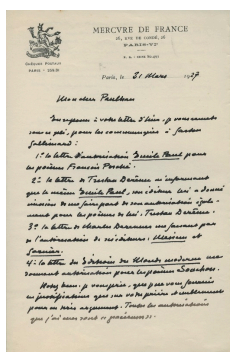 MERCVRE DE FRANCE
26, RVE DE CONDÉ, 26
PARIS-VIe
PARIS
Paris, le 31 Mars 1927
Monsieur Paulhan
En réponse à votre lettre d'hier, je vous remets
sous ce pli, pour les communiquer à Gaston
Gallimard :
1° la lettre d'autorisation Emile Paul pour
les poèmes François Porché.
2° la lettre de Tristan Derème m'informant
que la maison Emile Paul, son éditeur lui a donné
mission de me faire part de son autorisation égale-
ment pour les poèmes de lui, Tristan Derème.
3° la lettre de Charles Derennes me faisant part
de l'autorisation de ses éditeurs,
Garnier.
4° la lettre du Directeur du Monde moderne me
donnant autorisation pour les poèmes Souchon.
que vous fournis
justifications que sur votre prière et nullement
pour un tiers arrogant. Toutes les autorisations
que j'ai